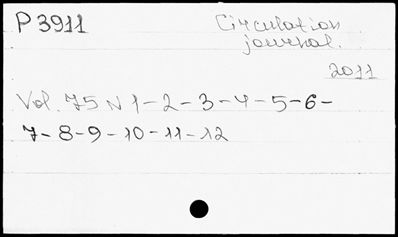 P 3911 Circulation
journal.
2011
Vol. 75 N 1-2-3-4-5-6-
7-8-9-10-11-12